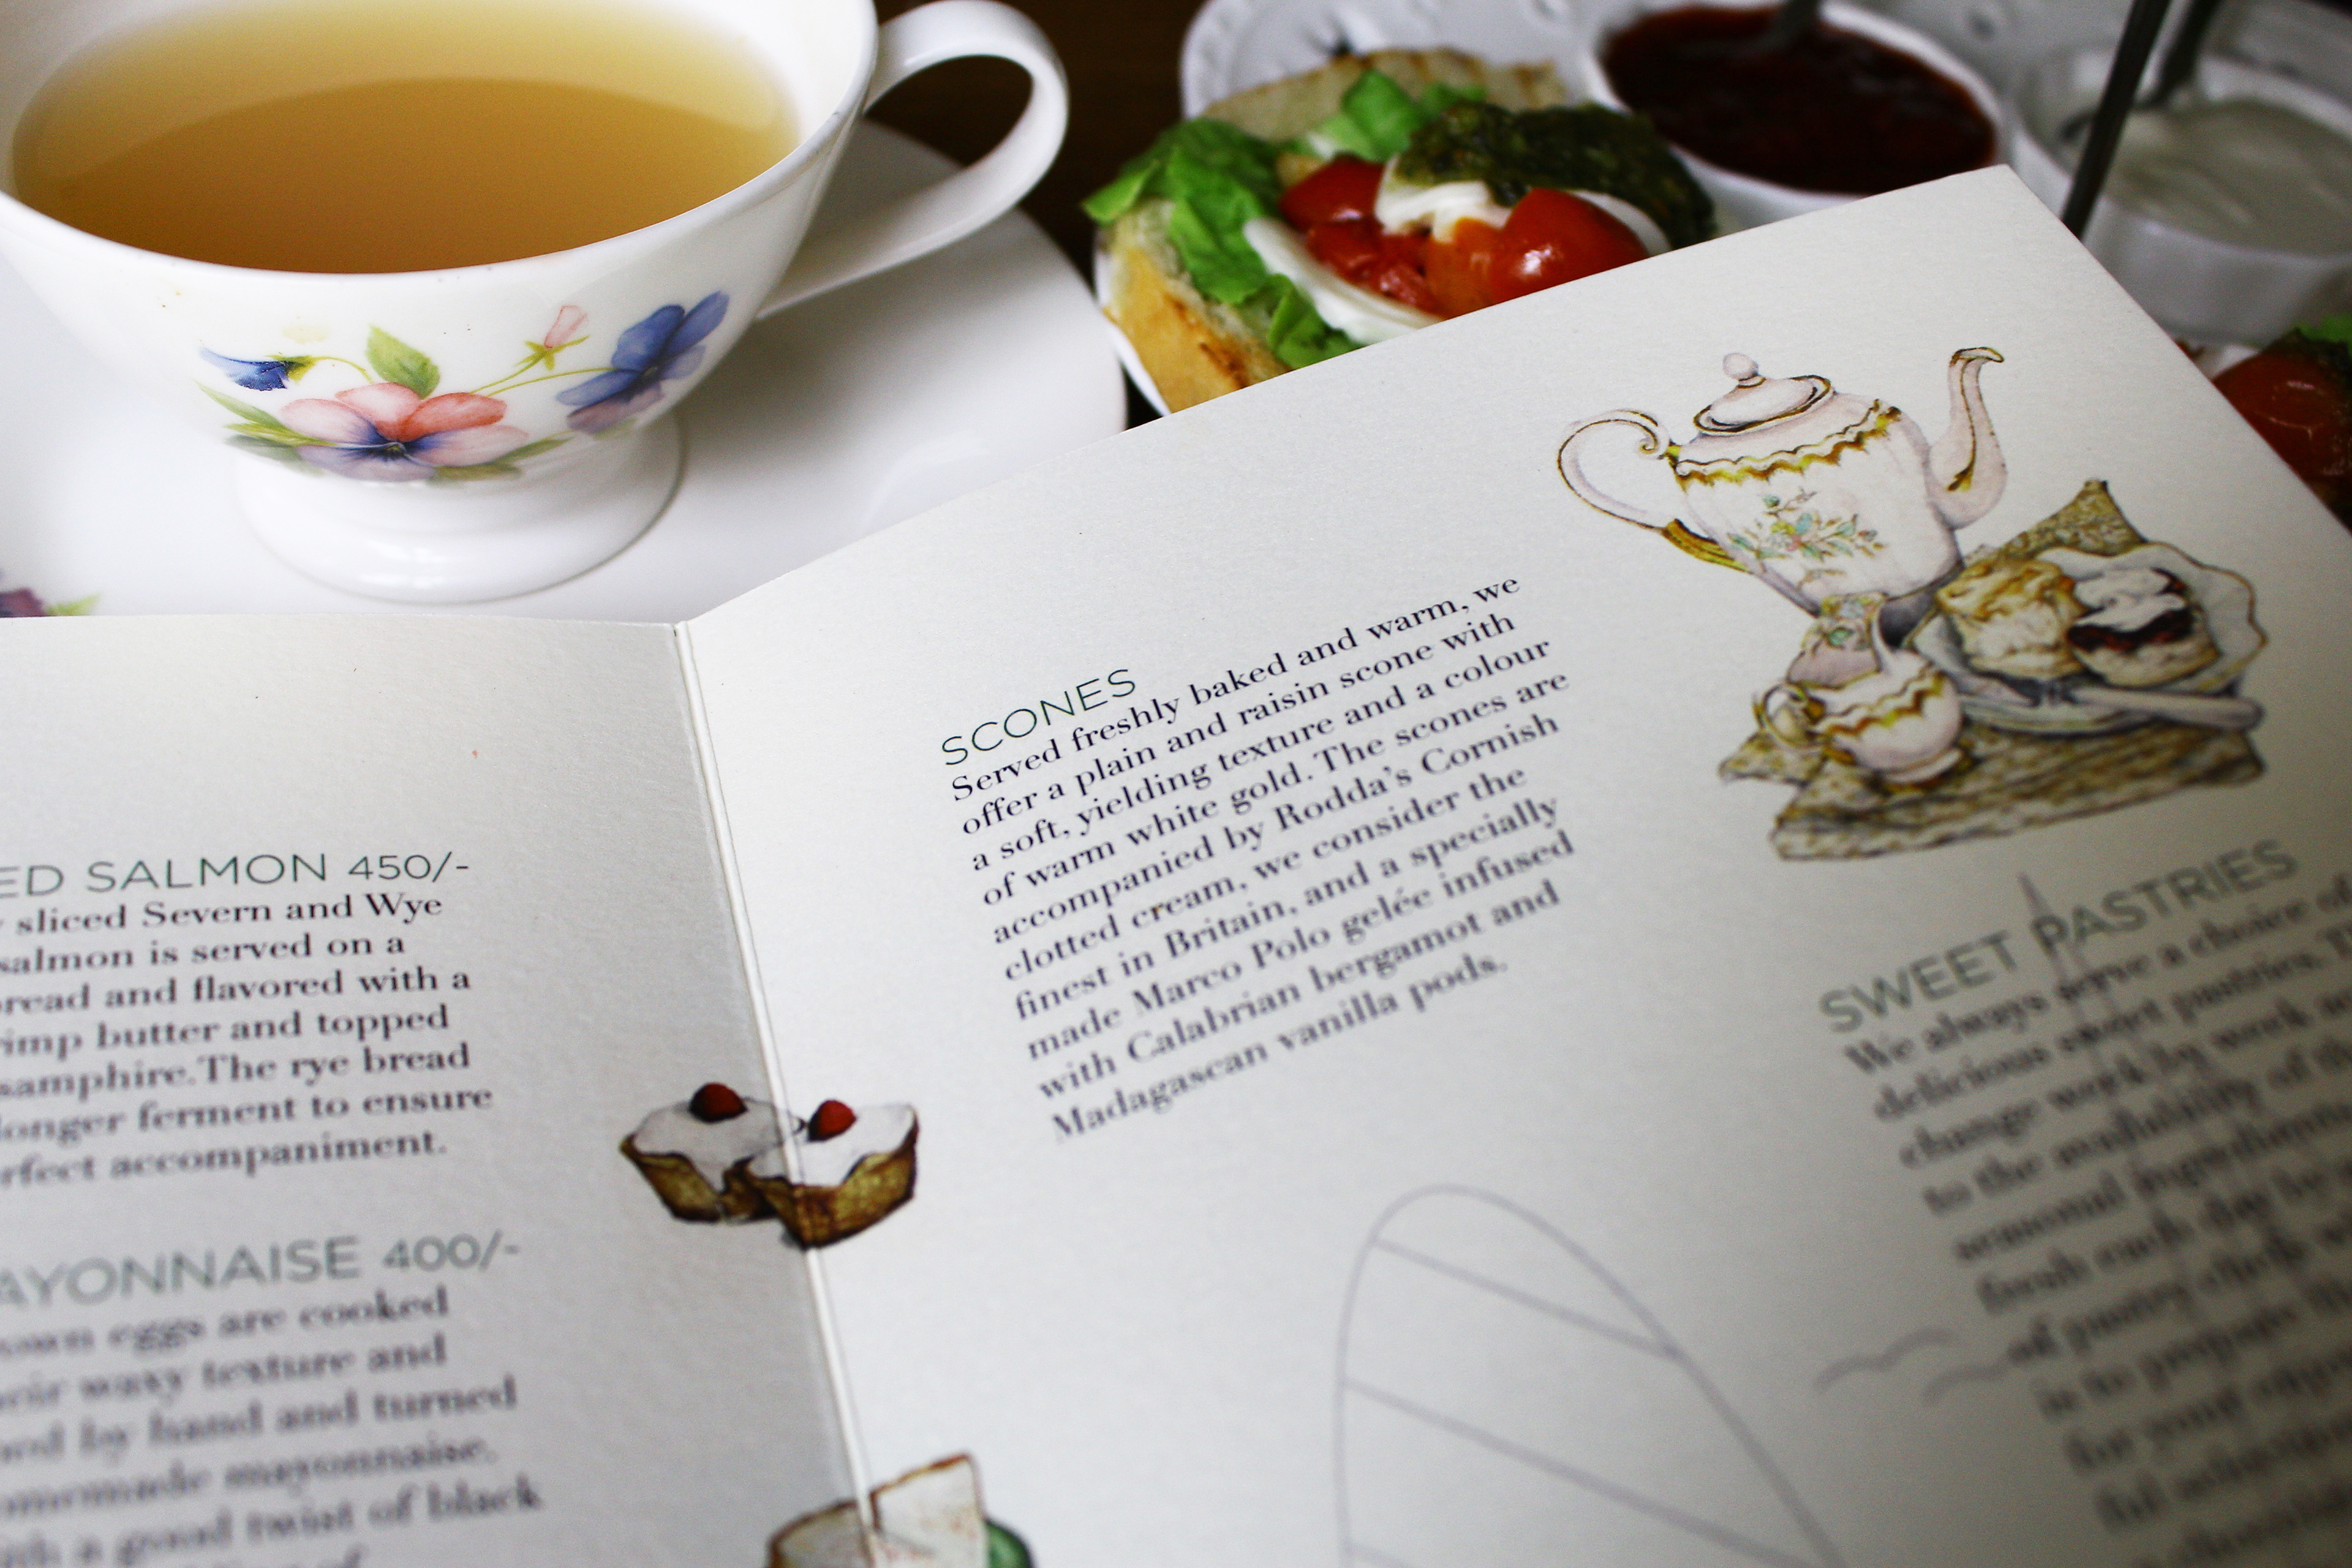 ED SALMON 450/-
sliced Severn and Wye
salmon is served on a
bread and flavored with a
butter and topped
samphire. The rye bread
longer ferment to ensure
accompaniment.
AYONNAISE 400/-
eggs are cooked
waxy texture and
by hand and turned
mayonnaise.
a good twist of black
SCONES
Served freshly baked and warm, we
offer a plain and raisin scone with
a soft, yielding texture and a colour
of warm white gold. The scones are
accompanied by Rodda's Cornish
clotted cream, we consider the
finest in Britain, and a specially
made Marco Polo gelée infused
with Calabrian bergamot and
Madagascan vanilla pods.
SWEET PASTRIES
We always serve a choice of
delicious sweet pastries.
change week by week
to the availability of
seasonal ingredients
each day
of pastry chefs
is to prepare
for your